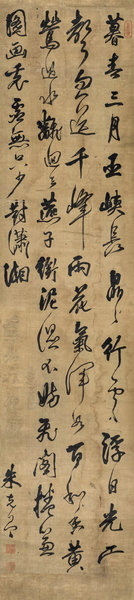 暮春三月巫峽長皛皛行雲浮日光雷
聲忽送千峰雨花氣渾如百和香黃
鶯過水翻迴去燕子銜泥濕不妨飛閣捲簾
圖畫裏虛無只少對瀟湘
朱克